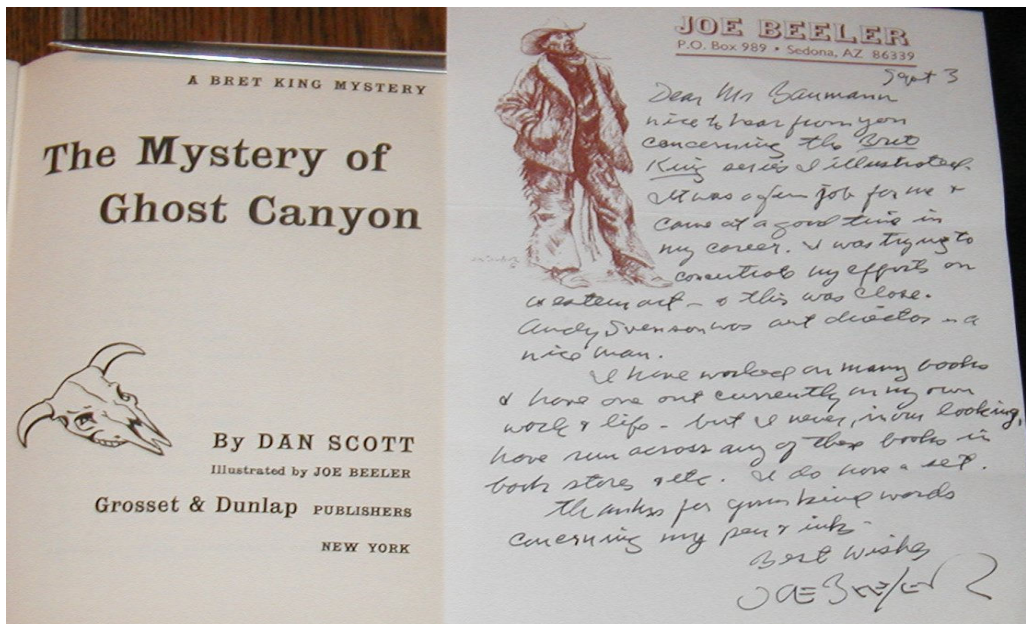 A BRET KING MYSTERY
The Mystery of
Ghost Canyon
By DAN SCOTT
Illustrated by JOE BEELER
Grosset & Dunlap PUBLISHERS
NEW YORK
JOE BEELER
P.O. Box 989 • Sedona, AZ 86339
Sept 3
Dear Mr Baumann
nice to hear from you
concerning the Bret
King series I illustrated.
It was a fun job for me &
came at a good time in
my career. I was trying to
concentrate my efforts on
western art – & this was close.
Andy Svenson was art director – a
nice man.
I have worked on many books
& have one out currently on my own
work & life – but I never, in my looking,
have run across any of these books in
book stores & etc. I do have a set.
Thanks for your kind words
concerning my pen & ink –
Best Wishes
JOE BEELER